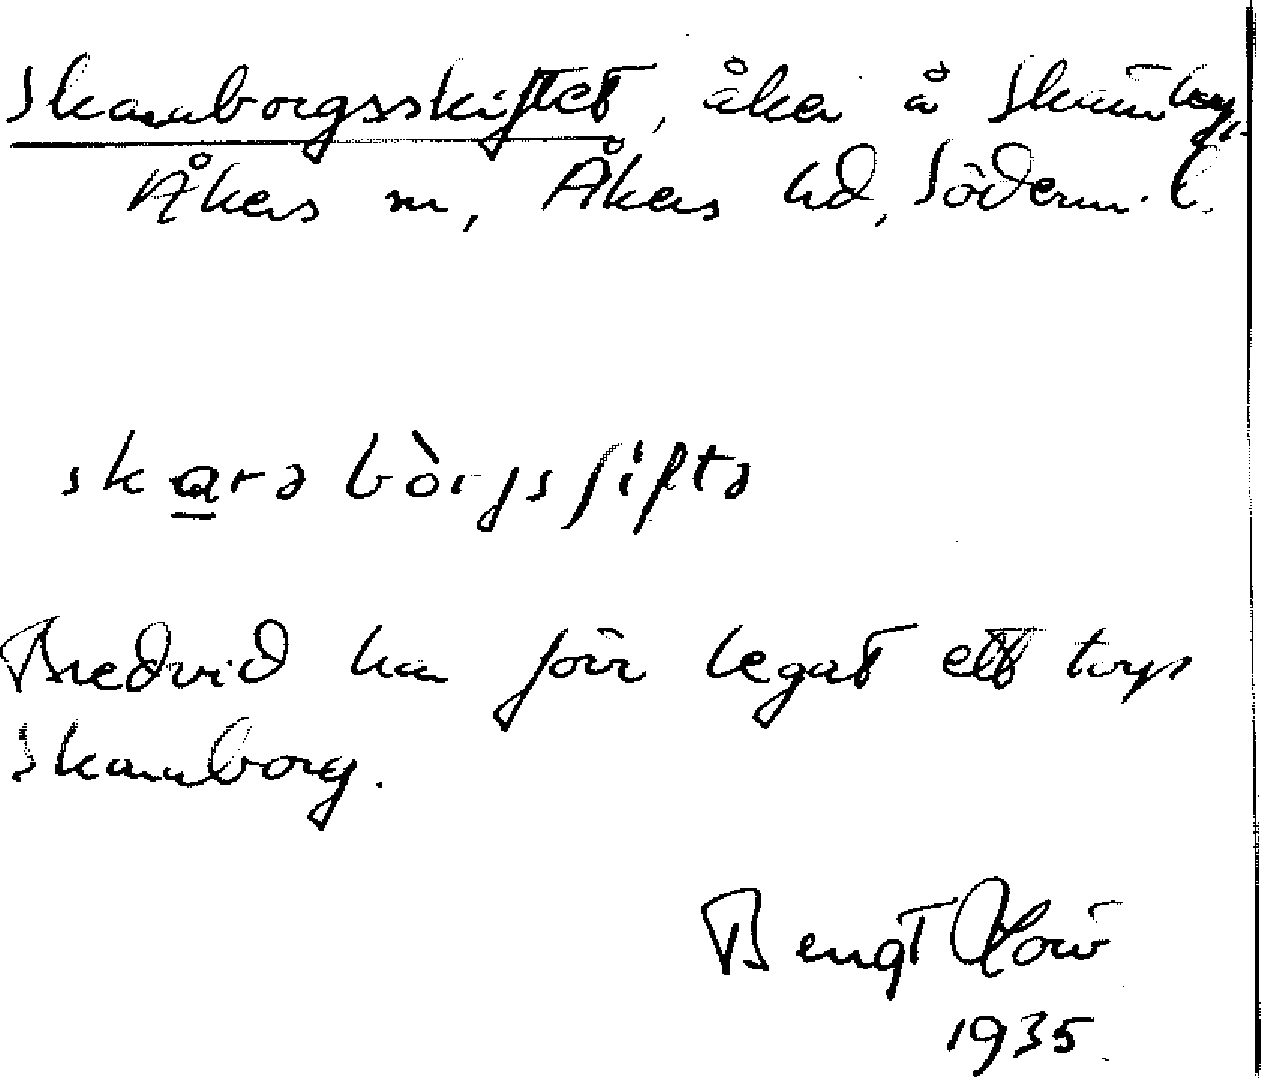 Skaraborgsskiftet, åker å
Åkers sn, Åkers hd, Söderm. l.
skarə bòrgs ʃiftə
Bredvid har förr legat ett torp
Skaraborg.
Bengt
1935